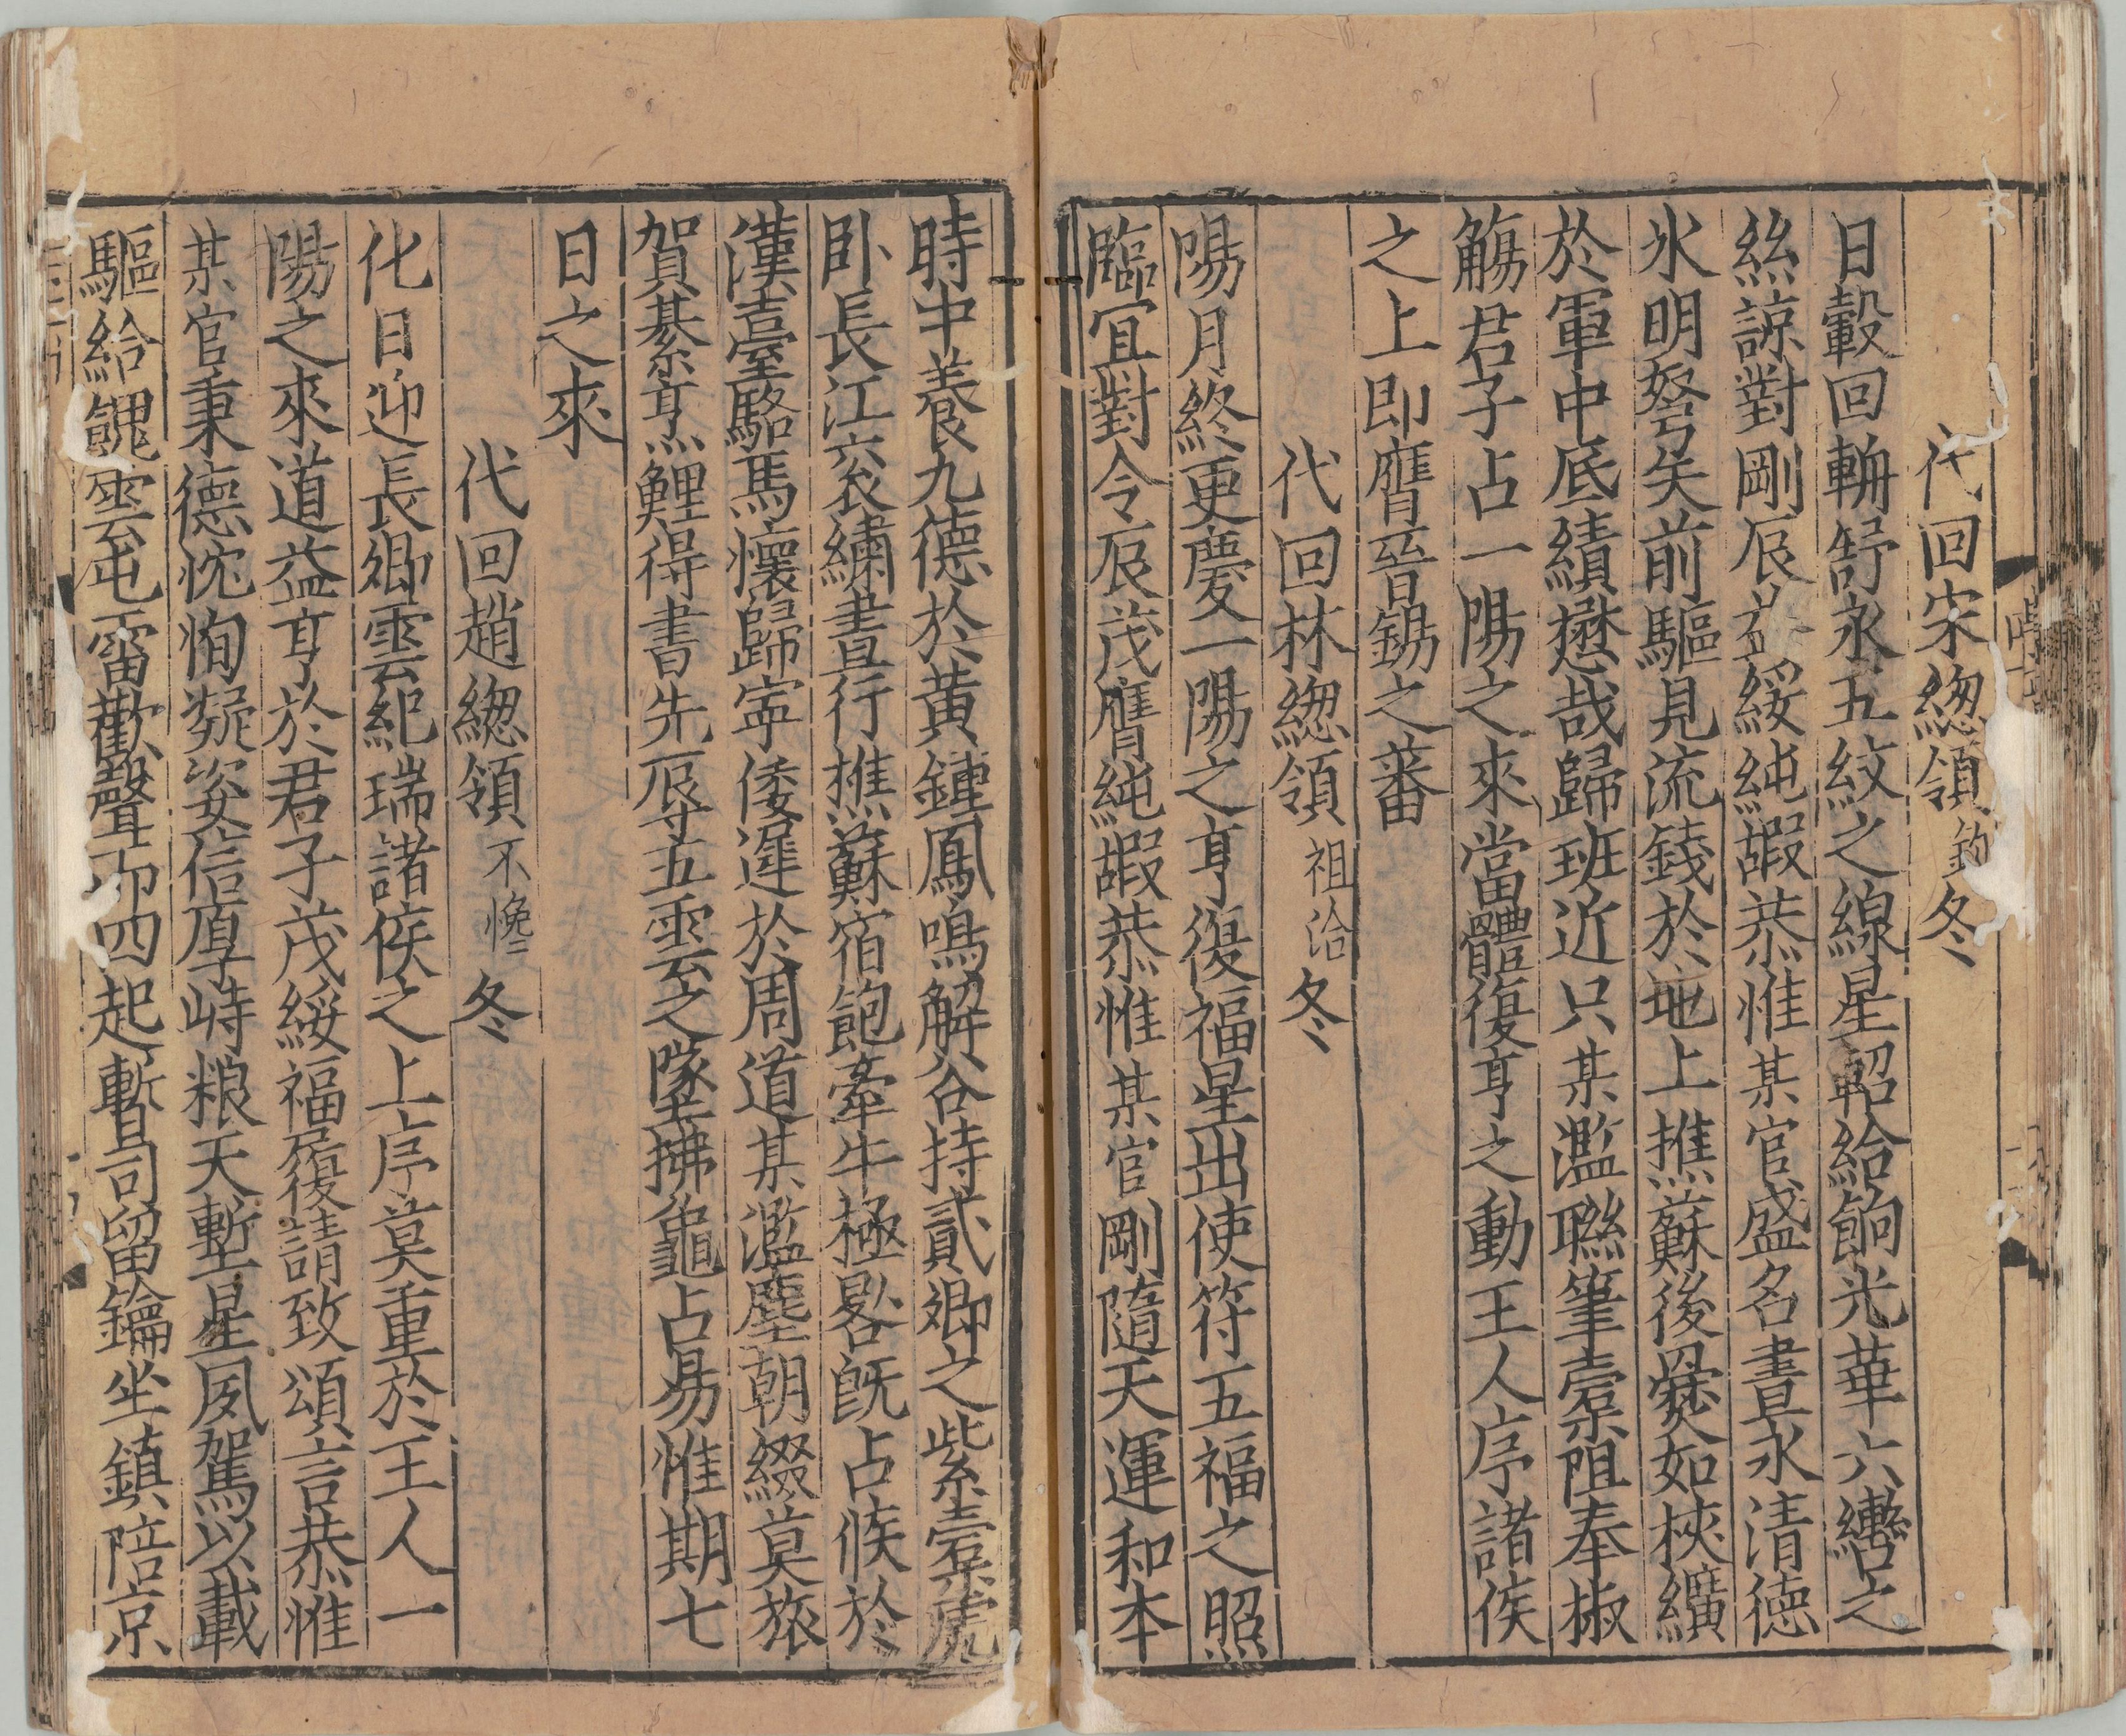 代回宋緫領鈞冬
日轂回輧舒永五紋之線星軺給餉光華六轡之
絲諒對剛辰茂綏純嘏恭惟某官盛名晝永清德
氷明弩矢前驅見流錢於地上撨蘇後㸑如挾纊
於軍中底績懋哉歸班近只某濫聮筆橐阻奉椒
觴君子占一陽之來當體復亨之動王人序諸侯
之上即膺晉錫之蕃
代回林緫領祖洽冬
陽月終更慶一陽之亨復福星出使符五福之照
臨宜對令辰茂膺純嘏恭惟某官剛隨天運和本
時中養九德於黃鍾鳳鳴解谷持貳卿之紫橐虎
卧長江衮繡晝行撨蘇宿飽牽牛極晷旣占候於
漢臺駱馬懷歸寜倭遲於周道某濫塵朝綴莫旅
賀綦烹鯉得書先辱五雲之墜拂龜占易惟期七
日之來
代回趙緫領不㥇冬
化日迎長卿雲紀瑞諸侯之上序莫重於王人一
陽之來道益亨於君子茂綏福履請致頌言恭惟
某官秉德忱恂凝姿信厚峙粮天塹星夙駕以載
驅給餽雲屯靁歡聲而四起暫司留鑰坐鎮陪京